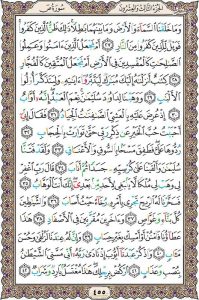 الجزء الثالث والعشرون سورة ص
وَمَا خَلَقْنَا ٱلسَّمَآءَ وَٱلْأَرْضَ وَمَا بَيْنَهُمَا بَٰطِلًا ذَٰلِكَ ظَنُّ ٱلَّذِينَ كَفَرُوا۟
فَوَيْلٌ لِّلَّذِينَ كَفَرُوا۟ مِنَ ٱلنَّارِ ٢٧ أَمْ نَجْعَلُ ٱلَّذِينَ ءَامَنُوا۟ وَعَمِلُوا۟
ٱلصَّٰلِحَٰتِ كَٱلْمُفْسِدِينَ فِى ٱلْأَرْضِ أَمْ نَجْعَلُ ٱلْمُتَّقِينَ كَٱلْفُجَّارِ
٢٨ كِتَٰبٌ أَنزَلْنَٰهُ إِلَيْكَ مُبَٰرَكٌ لِّيَدَّبَّرُوٓا۟ ءَايَٰتِهِۦ وَلِيَتَذَكَّرَ أُو۟لُوا۟
ٱلْأَلْبَٰبِ ٢٩ وَوَهَبْنَا لِدَاوُۥدَ سُلَيْمَٰنَ نِعْمَ ٱلْعَبْدُ إِنَّهُۥٓ أَوَّابٌ
٣٠ إِذْ عُرِضَ عَلَيْهِ بِٱلْعَشِىِّ ٱلصَّٰفِنَٰتُ ٱلْجِيَادُ ٣١ فَقَالَ إِنِّىٓ
أَحْبَبْتُ حُبَّ ٱلْخَيْرِ عَن ذِكْرِ رَبِّى حَتَّىٰ تَوَارَتْ بِٱلْحِجَابِ ٣٢
رُدُّوهَا عَلَىَّ فَطَفِقَ مَسْحًۢا بِٱلسُّوقِ وَٱلْأَعْنَاقِ ٣٣ وَلَقَدْ فَتَنَّا
سُلَيْمَٰنَ وَأَلْقَيْنَا عَلَىٰ كُرْسِيِّهِۦ جَسَدًا ثُمَّ أَنَابَ ٣٤ قَالَ رَبِّ ٱغْفِرْ
لِى وَهَبْ لِى مُلْكًا لَّا يَنۢبَغِى لِأَحَدٍ مِّنۢ بَعْدِىٓ إِنَّكَ أَنتَ ٱلْوَهَّابُ ٣٥
فَسَخَّرْنَا لَهُ ٱلرِّيحَ تَجْرِى بِأَمْرِهِۦ رُخَآءً حَيْثُ أَصَابَ ٣٦ وَٱلشَّيَٰطِينَ
كُلَّ بَنَّآءٍ وَغَوَّاصٍ ٣٧ وَءَاخَرِينَ مُقَرَّنِينَ فِى ٱلْأَصْفَادِ ٣٨ هَٰذَا
عَطَآؤُنَا فَٱمْنُنْ أَوْ أَمْسِكْ بِغَيْرِ حِسَابٍ ٣٩ وَإِنَّ لَهُۥ عِندَنَا لَزُلْفَىٰ وَحُسْنَ
مَـَٔابٍ ٤٠ وَٱذْكُرْ عَبْدَنَآ أَيُّوبَ إِذْ نَادَىٰ رَبَّهُۥٓ أَنِّى مَسَّنِىَ ٱلشَّيْطَٰنُ
بِنُصْبٍ وَعَذَابٍ ٤١ ٱرْكُضْ بِرِجْلِكَ هَٰذَا مُغْتَسَلٌۢ بَارِدٌ وَشَرَابٌ ٤٢
٤٥٥